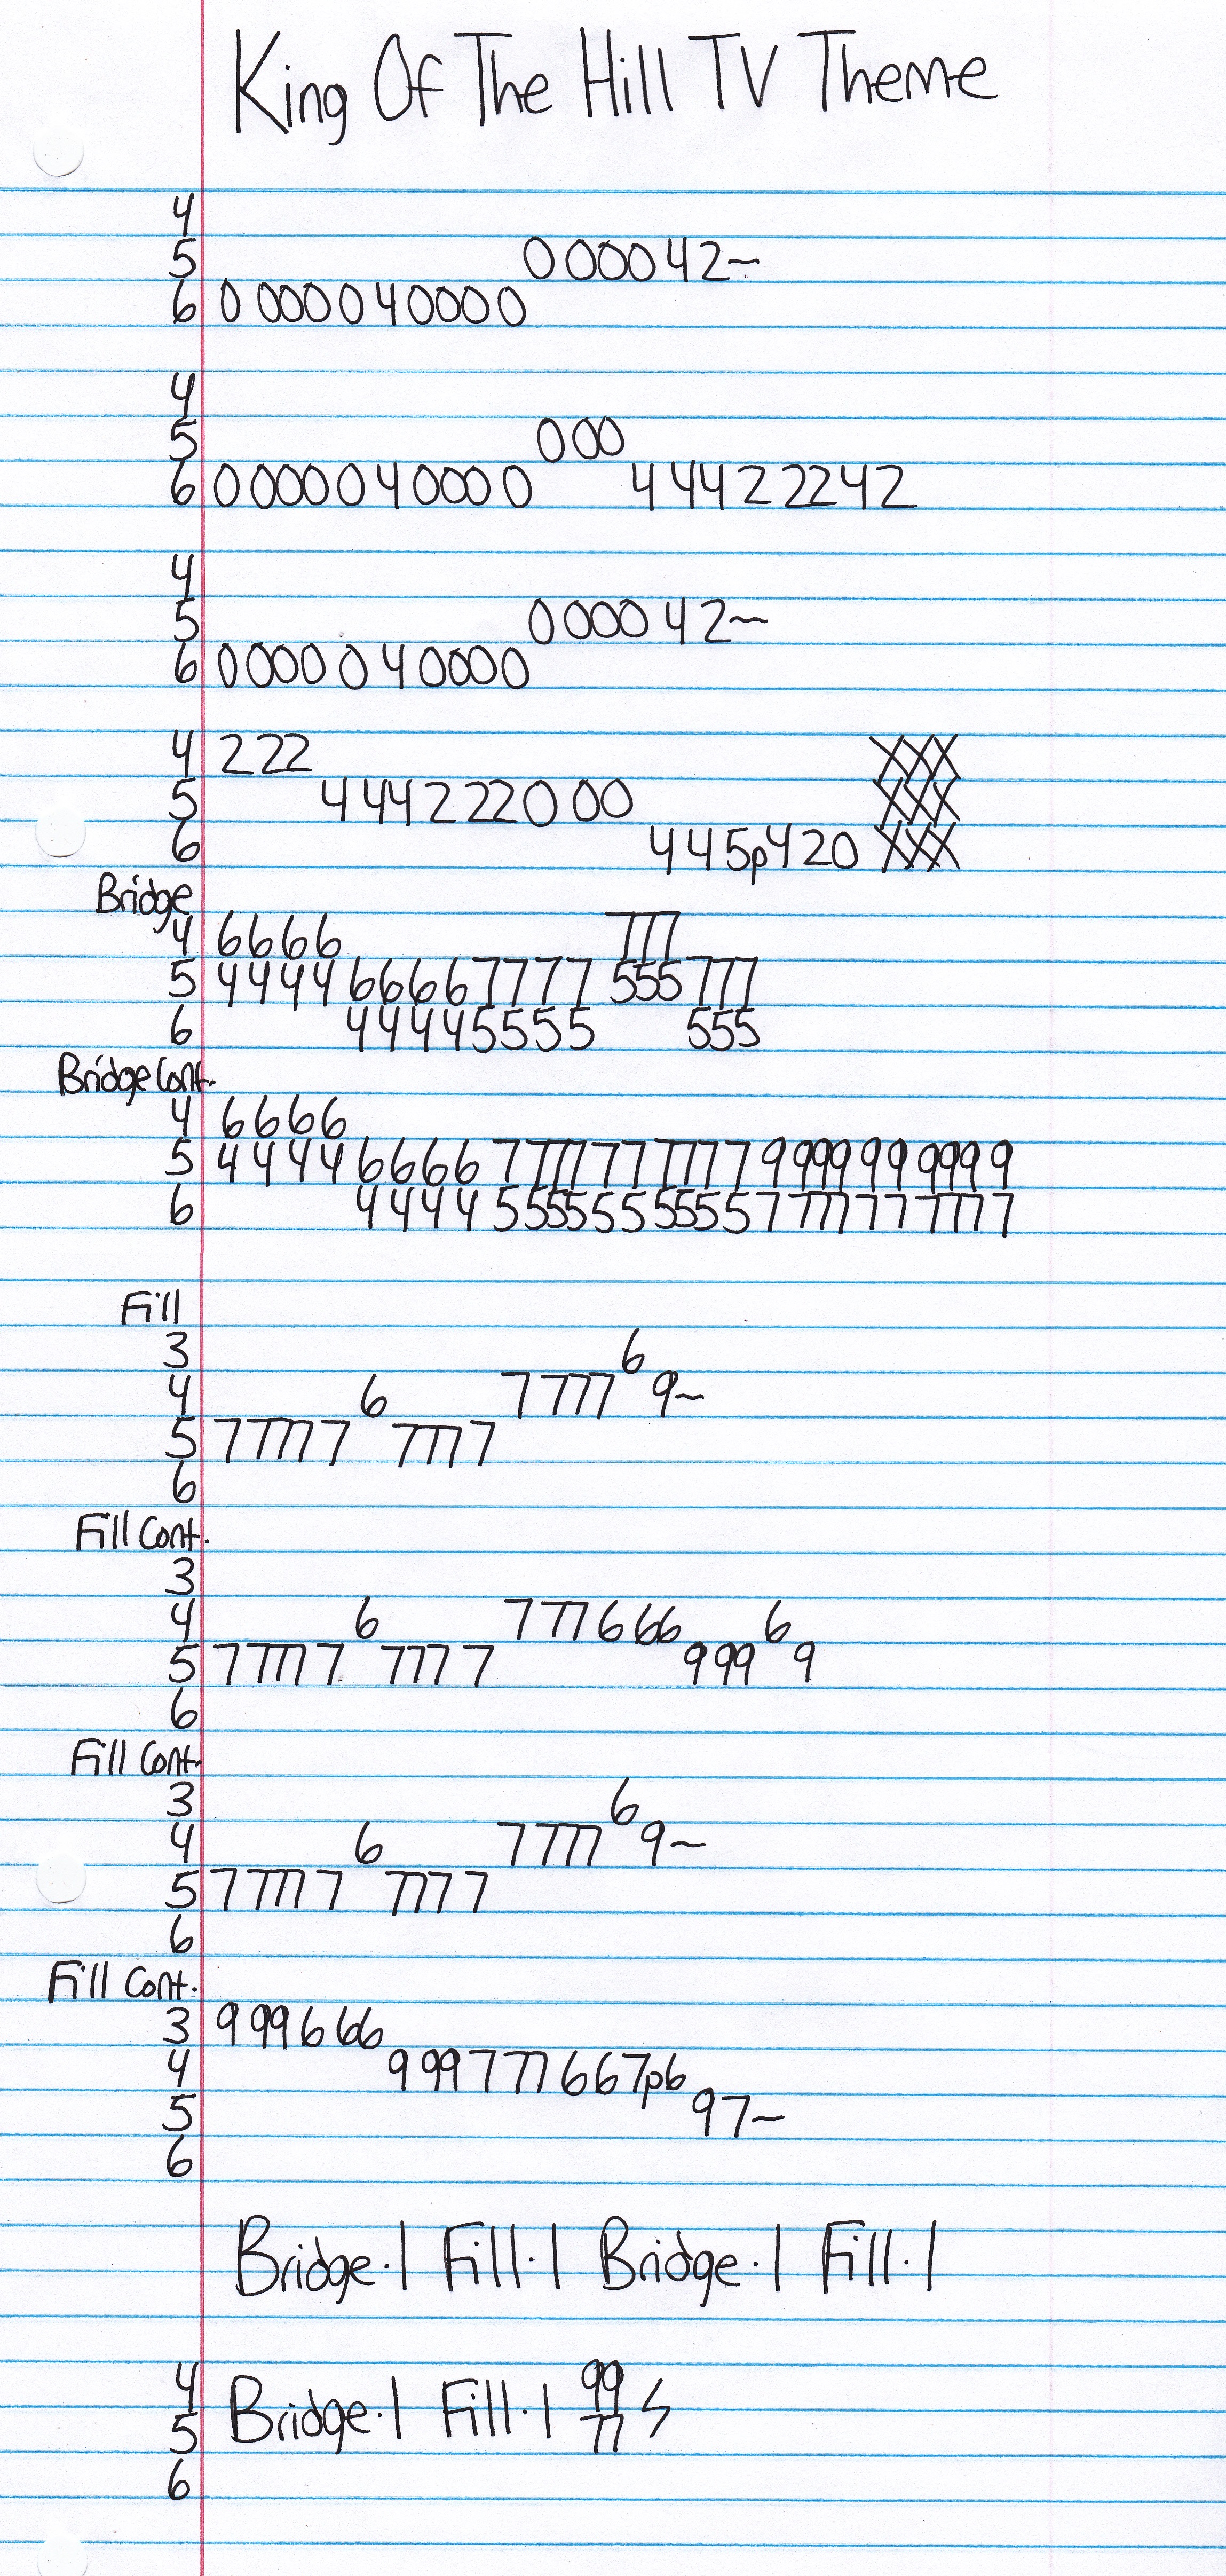 King Of The Hill TV Theme
4
5 0 000 42~
6 0 000 0 4 0000
4
5 000
6 0 000 0 4 000 0 4 442 2242
4
5 0 000 42~
6 0000 0 4 0000
4 222 XXX
5 4 44222 0 00 XXX
6 445p420 XXX
Bridge
4 6666 777
5 4444 6666 7777 555 777
6 4444 5555 555
Bridge Cont.
4 6666
5 4444 6666 7 777 77 7777 9 999 99 9999
6 4444 5 555 55 5555 7 777 77 7777
Fill
3 6
4 6 7777 9~
5 77777 7777
6
Fill Cont.
3
4 6 777666 6
5 77777 7777 999 9
6
Fill Cont.
3 6
4 6 7777 9~
5 77777 7777
6
Fill Cont.
3 999666
4 999777667p6
5 97~
6
Bridge.| Fill.| Bridge.| Fill.|
4 99
5 Bridge.| Fill.| 77
6